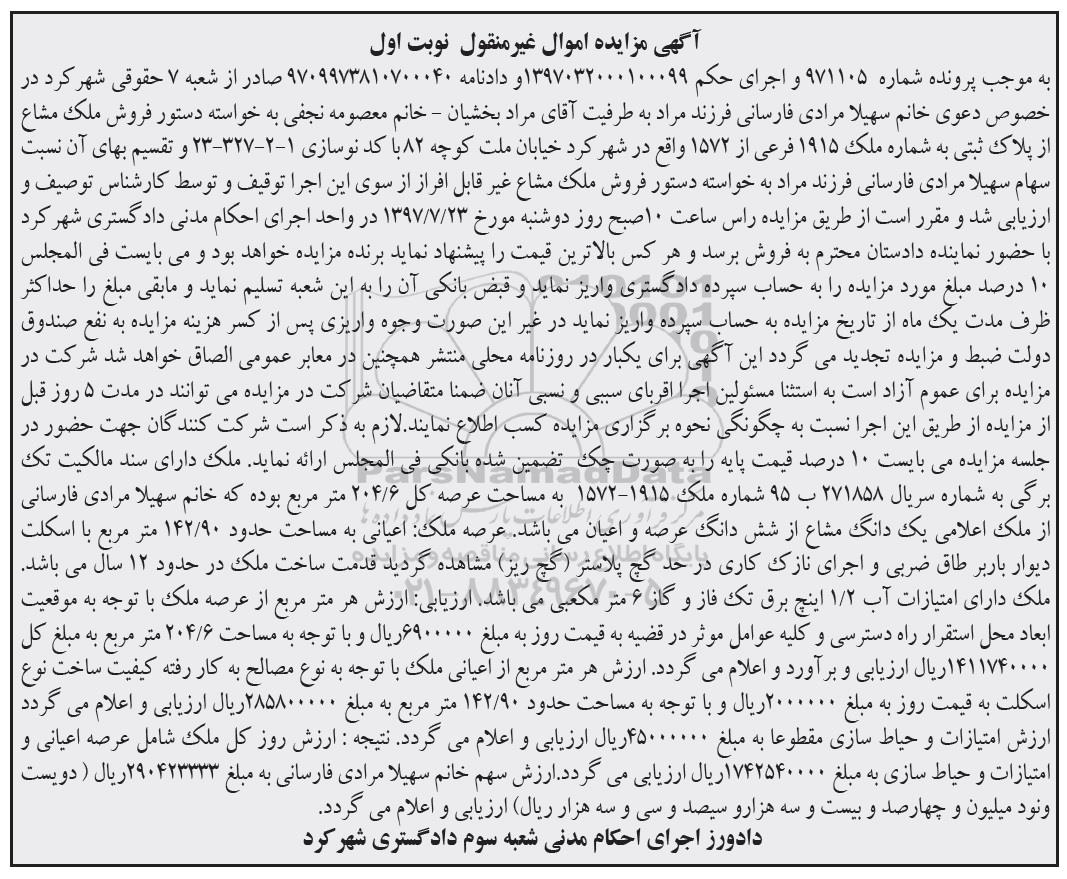 آگهی مزایده اموال غیرمنقول نوبت اول
به موجب پرونده شماره ۹۷۱۱۰۵ و اجرای حکم ۱۳۹۷۰۳۲۰۰۰۱۰۰۰۹۹و دادنامه ۹۷۰۹۹۷۳۸۱۰۷۰۰۰۴۰ صادر از شعبه ۷ حقوقی شهرکرد در
خصوص دعوی خانم سهیلا مرادی فارسانی فرزند مراد به طرفیت آقای مراد بخشیان - خانم معصومه نجفی به خواسته دستور فروش ملک مشاع
از پلاک ثبتی به شماره ملک ۱۹۱۵ فرعی از ۱۵۷۲ واقع در شهرکرد خیابان ملت کوچه ۸۲ با کد نوسازی ۱-۲-۳۲۷-۲۳ و تقسیم بهای آن نسبت
سهام سهیلا مرادی فارسانی فرزند مراد به خواسته دستور فروش ملک مشاع غیر قابل افراز از سوی این اجرا توقیف و توسط کارشناس توصیف و
ارزیابی شد و مقرر است از طریق مزایده راس ساعت ۱۰صبح روز دوشنبه مورخ ۱۳۹۷/۷/۲۳ در واحد اجرای احکام مدنی دادگستری شهرکرد
با حضور نماینده دادستان محترم به فروش برسد و هر کس بالاترین قیمت را پیشنهاد نماید برنده مزایده خواهد بود و می بایست فی المجلس
۱۰ درصد مبلغ مورد مزایده را به حساب سپرده دادگستری واریز نماید و قبض بانکی آن را به این شعبه تسلیم نماید و مابقی مبلغ را حداکثر
ظرف مدت یک ماه از تاریخ مزایده به حساب سپرده واریز نماید در غیر این صورت وجوه واریزی پس از کسر هزینه مزایده به نفع صندوق
دولت ضبط و مزایده تجدید می گردد این آگهی برای یکبار در روزنامه محلی منتشر همچنین در معابر عمومی الصاق خواهد شد شرکت در
مزایده برای عموم آزاد است به استثنا مسئولین اجرا اقربای سببی و نسبی آنان ضمنا متقاضیان شرکت در مزایده می توانند در مدت ۵ روز قبل
از مزایده از طریق این اجرا نسبت به چگونگی نحوه برگزاری مزایده کسب اطلاع نمایند.لازم به ذکر است شرکت کنندگان جهت حضور در
جلسه مزایده می بایست ۱۰ درصد قیمت پایه را به صورت چک تضمین شده بانکی فی المجلس ارائه نماید. ملک دارای سند مالکیت تک
برگی به شماره سریال ۲۷۱۸۵۸ ب ۹۵ شماره ملک ۱۹۱۵-۱۵۷۲ به مساحت عرصه کل ۲۰۴/۶ متر مربع بوده که خانم سهیلا مرادی فارسانی
از ملک اعلامی یک دانگ مشاع از شش دانگ عرصه و اعیان می باشد. عرصه ملک: اعیانی به مساحت حدود ۱۴۲/۹۰ متر مربع با اسکلت
دیوار باربر طاق ضربی و اجرای نازک کاری در حد گچ پلاستر (گچ ریز) مشاهده گردید قدمت ساخت ملک در حدود ۱۲ سال می باشد.
ملک دارای امتیازات آب ۱/۲ اینچ برق تک فاز و گاز ۶ متر مکعبی می باشد. ارزیابی: ارزش هر متر مربع از عرصه ملک با توجه به موقعیت
ابعاد محل استقرار راه دسترسی و کلیه عوامل موثر در قضیه به قیمت روز به مبلغ ۶۹۰۰۰۰۰ریال و با توجه به مساحت ۲۰۴/۶ متر مربع به مبلغ کل
۱۴۱۱۷۴۰۰۰۰ریال ارزیابی و برآورد و اعلام می گردد. ارزش هر متر مربع از اعیانی ملک با توجه به نوع مصالح به کار رفته کیفیت ساخت نوع
اسکلت به قیمت روز به مبلغ ۲۰۰۰۰۰۰ریال و با توجه به مساحت حدود ۱۴۲/۹۰ متر مربع به مبلغ ۲۸۵۸۰۰۰۰۰ریال ارزیابی و اعلام می گردد
ارزش امتیازات و حیاط سازی مقطوعا به مبلغ ۴۵۰۰۰۰۰۰ریال ارزیابی و اعلام می گردد. نتیجه : ارزش روز کل ملک شامل عرصه اعیانی و
امتیازات و حیاط سازی به مبلغ ۱۷۴۲۵۴۰۰۰۰ریال ارزیابی می گردد.ارزش سهم خانم سهیلا مرادی فارسانی به مبلغ ۲۹۰۴۲۳۳۳۳ریال ( دویست
ونود میلیون و چهارصد و بیست و سه هزارو سیصد و سی و سه هزار ریال) ارزیابی و اعلام می گردد.
دادورز اجرای احکام مدنی شعبه سوم دادگستری شهرکرد
ParsNamadData
پایگاه اطلاع رسانی مناقصه و مزایده
۰۲۱-۸۸۳۴۹۶۷۰-۵